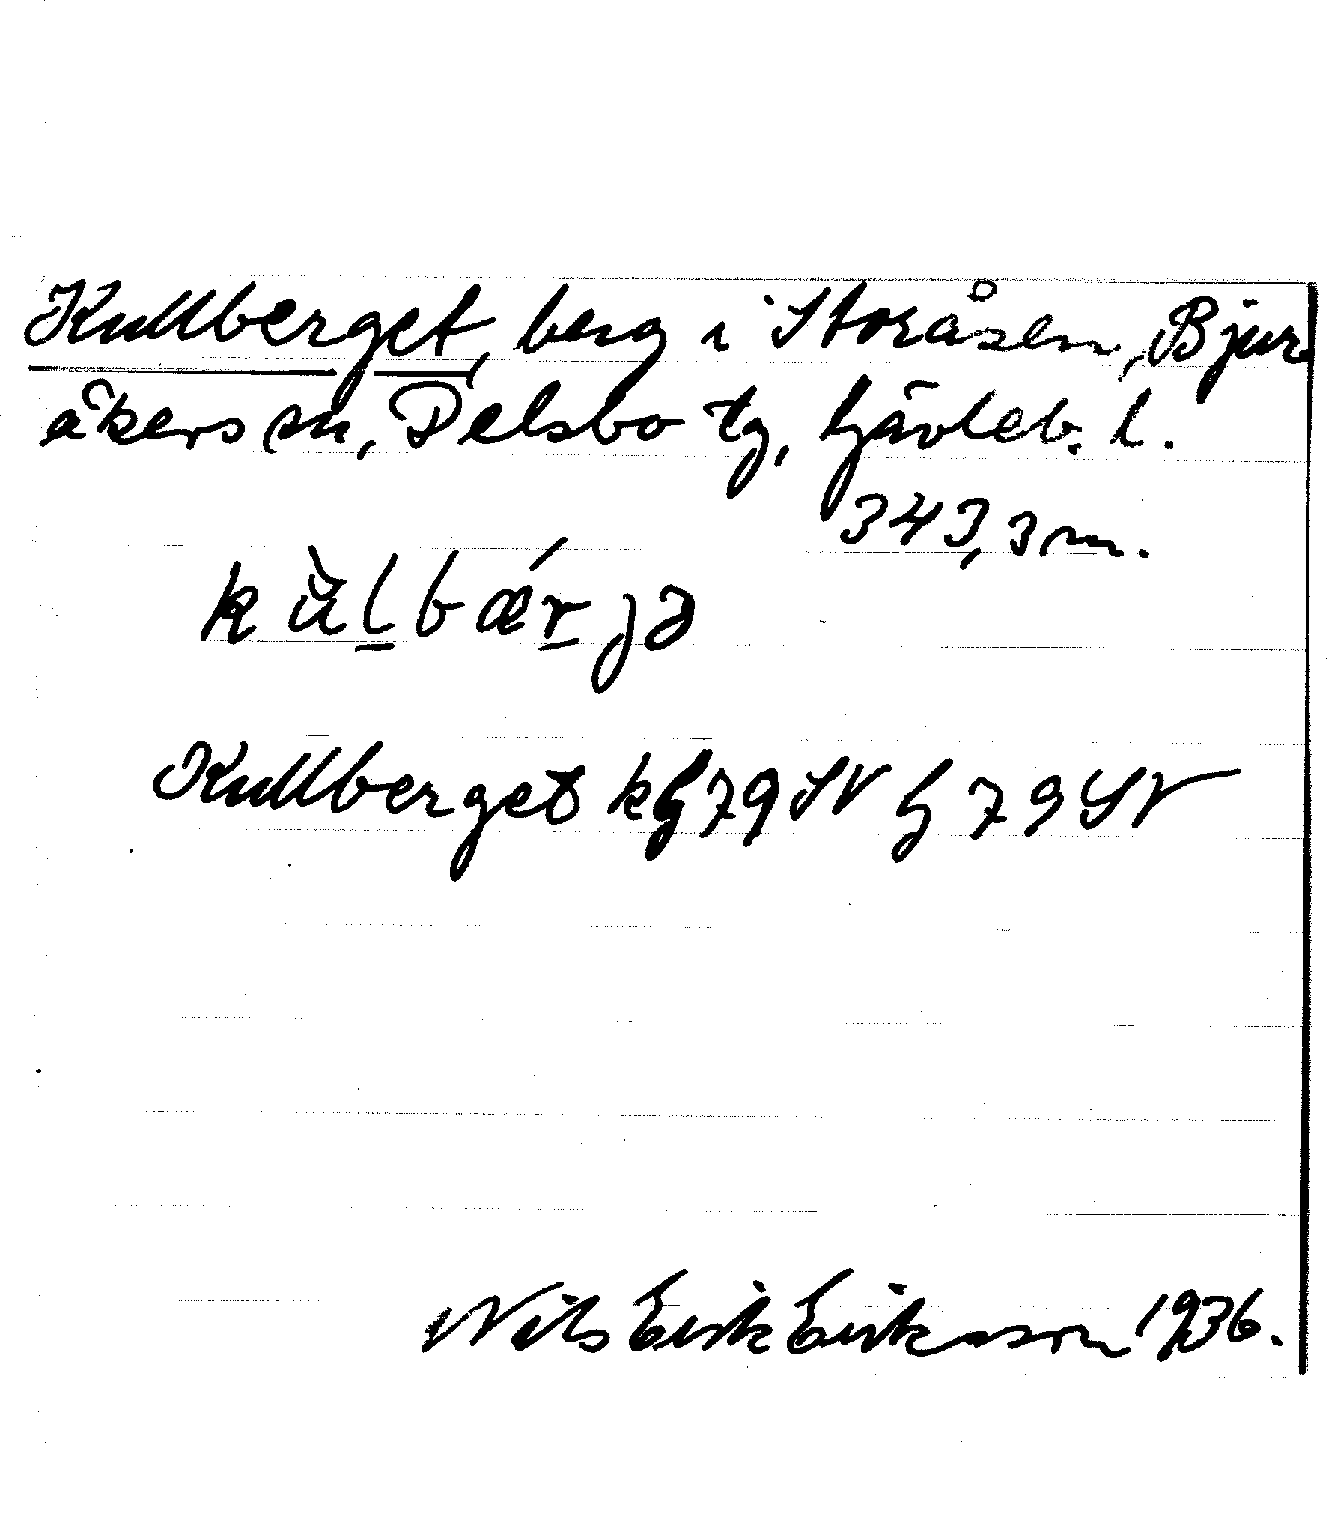 Kullberget, berg i Storåsen, Bjur
åkers sn, Delsbo tg, Gävleb. l.
343,3 m.
kùlbǽrjə
Kullberget kg 79 SV G 79 SV
Nils Erik Eriksson 1936.